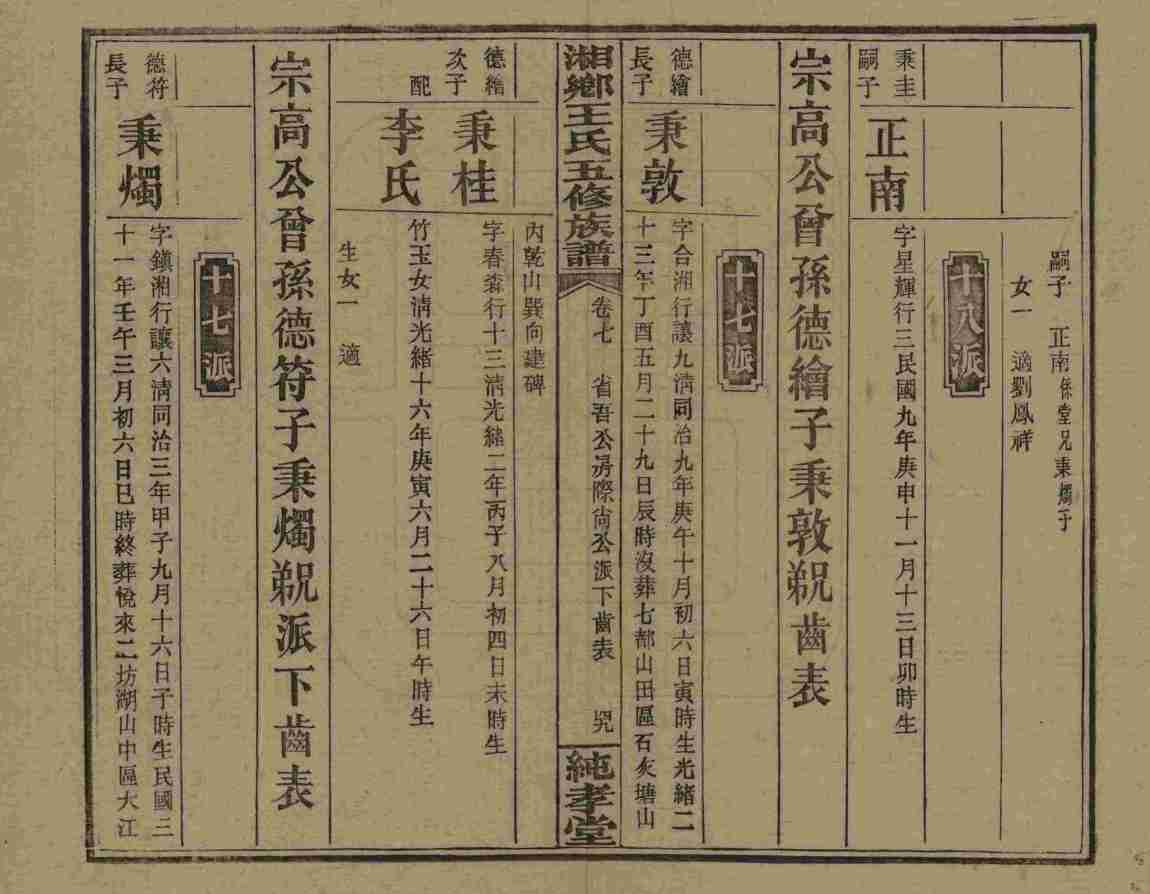 嗣子 正南係堂兄秉燭子
女一 適劉鳳祥
十八派
秉圭
嗣子
正南
字星輝行三民國九年庚申十一月十三日卯時生
宗高公曾孫德繪子秉敦觬齒表
十七派
德繪
長子
秉敦
字合湘行讓九清同治九年庚午十月初六日寅時生光緒二
十三年丁酉五月二十九日辰時沒葬七都山田區石灰塘山
湘鄉王氏五修族譜
卷七 省吾公房際尚公派下齒表
純孝堂
內乾山巽向建碑
德繪
次子
秉桂
字春森行十三清光緒二年丙子八月初四日未時生
配
李氏
竹玉女清光緒十六年庚寅六月二十六日午時生
生女一 適
宗高公曾孫德符子秉燭觬派下齒表
十七派
德符
長子
秉燭
字鎮湘行讓六清同治三年甲子九月十六日子時生民國三
十一年壬午三月初六日巳時終葬悅來二坊湖山中區大江